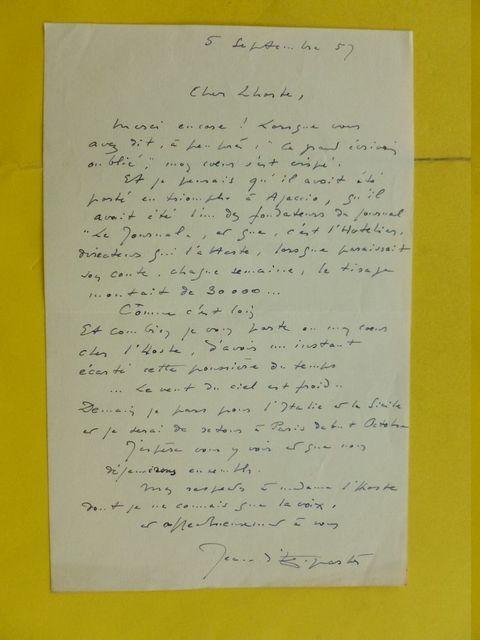 5 Septembre 57
Cher Lhoste,
Merci encore ! Lorsque vous
avez dit, à peu près, "Ce grand écrivain
oublié", mon cœur s'est crispé.
Et je pensais qu'il avait été
porté en triomphe à Ajaccio, qu'il
avait été l'un des fondateurs du journal
"Le Journal", et que, c'est
directeur qui l'atteste, lorsque paraissait
son conte, chaque semaine, le tirage
montait de 30000...
Comme c'est loin
Et combien je vous porte en mon cœur
cher l'Hoste, d'avoir un instant
écarté cette poussière du temps
... Le vent du ciel est froid..
Demain je pars pour l'Italie et la Sicile
et je serai de retour à Paris début Octobre
J'espère vous y voir et que nous
déjeunerons ensemble.
Mes respects à madame l'Hoste
dont je ne connais que la voix,
et affectueusement à vous
Jean d'Esparbès